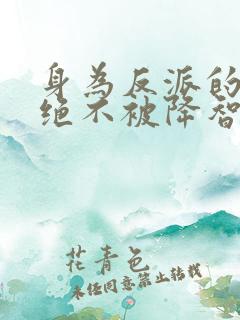 身為反派的
绝不被降智
花青色
未经同意禁止转载